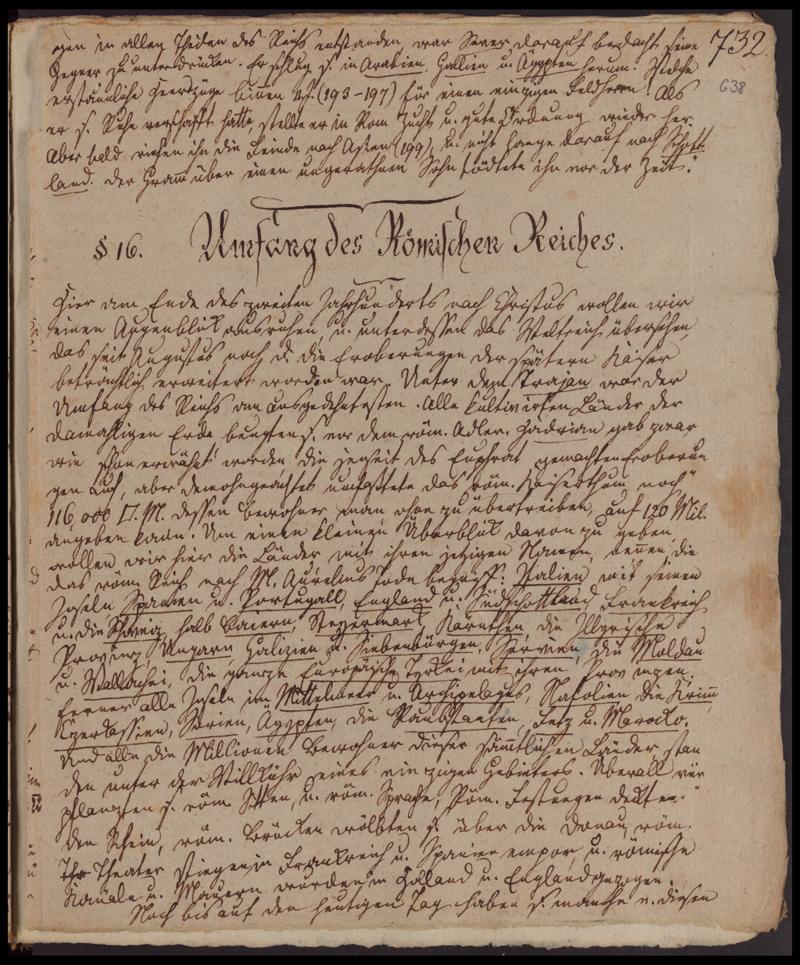 732.
638
gen in allen Theilen des Reichs entstanden, war Sever darauf bedacht seine
Gegner zu unterdrücken. Er schlug s. in Arabien, Gallien u. Ägypten herum. Welche
erstaunliche Heerzüge binnen 4 J. (193-197) für einen einzigen Feldherrn! Als
er s. Ruhe verschafft hatte, stellte er in Rom Zucht u. gute Ordnung wieder her.
Aber bald riefen ihn die Feinde nach Asien (199), u. nicht lange darauf nach Schott
land. Der Gram über einen ungerathnen Sohn tödtete ihn vor der Zeit.
§ 16. Umfang des Römischen Reiches.
Hier am Ende des zweiten Jahrhunderts nach Christus wollen wir
einen Augenblick ausruhen, u. unterdessen das Weltreich übersehen,
das seit Augustus noch d. die Eroberungen der spätern Kaiser
beträchtlich erweitert worden war. Unter dem Trajan war der
Umfang des Reichs am ausgedehntesten. Alle kultivirten Länder der
damahligen Erde beugten s. vor dem röm. Adler. Hadrian gab zwar,
wie schon erwähnt worden die jenseit des Euphrat gemachten Eroberun
gen auf, aber demohngeachtet umfasste das röm. Kaiserthum noch
116,000 □. M. dessen Bewohner man ohne zu übertreiben, auf 120 Mil.
angeben kann. Um einen kleinen Überblick davon zu geben,
wollen wir hier die Länder mit ihren jetzigen Namen, nennen, die
das röm. Reich nach M. Aurelius Tode begriff: Italien mit seinen
Inseln Spanien u. Portugall, England u. Südschottland Frankreich
u. die Schweiz halb Baiern, Steyermark, Kärnthen, die Illyrische
Provinz, Ungarn, Galizien u. Siebenbürgen, Servien, die Moldau
u. Wallachei, die ganze Europäische Türkei mit ihren Provinzen.
Ferner alle Inseln im Mittelmeer u. Archipelagus, Natolien die Krimm
Tzerkassien, Sirien, Ägypten, die Raubstaaten, Fetz u. Marocko.
Und alle die Millionen Bewohner dieser sämmtlichen Länder stan
den unter der Willkühr eines einzigen Gebieters. Überall ver
pflanzten s. röm. Sitten, u. röm. Sprache, Röm. Festungen deckten
den Rhein, röm. Brücken wölbten s. über die Donau, röm.
Theater stiegen in Frankreich u. Spanien empor, u. römische
Kanäle u. Mauern wurden in Holland u. England gezogen.
Noch bis auf den heutigen Tag haben s. manche v. diesen